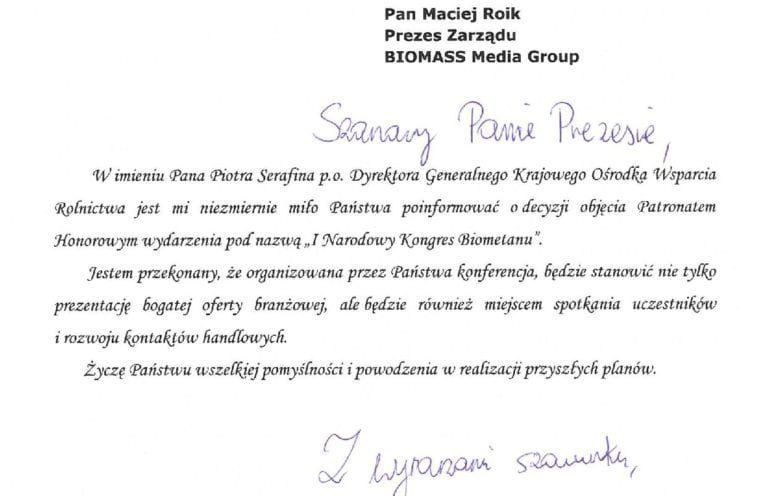 Pan Maciej Roik
Prezes Zarządu
BIOMASS Media Group
Szanowny Panie Prezesie,
W imieniu Pana Piotra Serafina p.o. Dyrektora Generalnego Krajowego Ośrodka Wsparcia
Rolnictwa jest mi niezmiernie miło Państwa poinformować o decyzji objęcia Patronatem
Honorowym wydarzenia pod nazwą „I Narodowy Kongres Biometanu”.
Jestem przekonany, że organizowana przez Państwa konferencja, będzie stanowić nie tylko
prezentację bogatej oferty branżowej, ale będzie również miejscem spotkania uczestników
i rozwoju kontaktów handlowych.
Życzę Państwu wszelkiej pomyślności i powodzenia w realizacji przyszłych planów.
Z wyrazami szacunku,